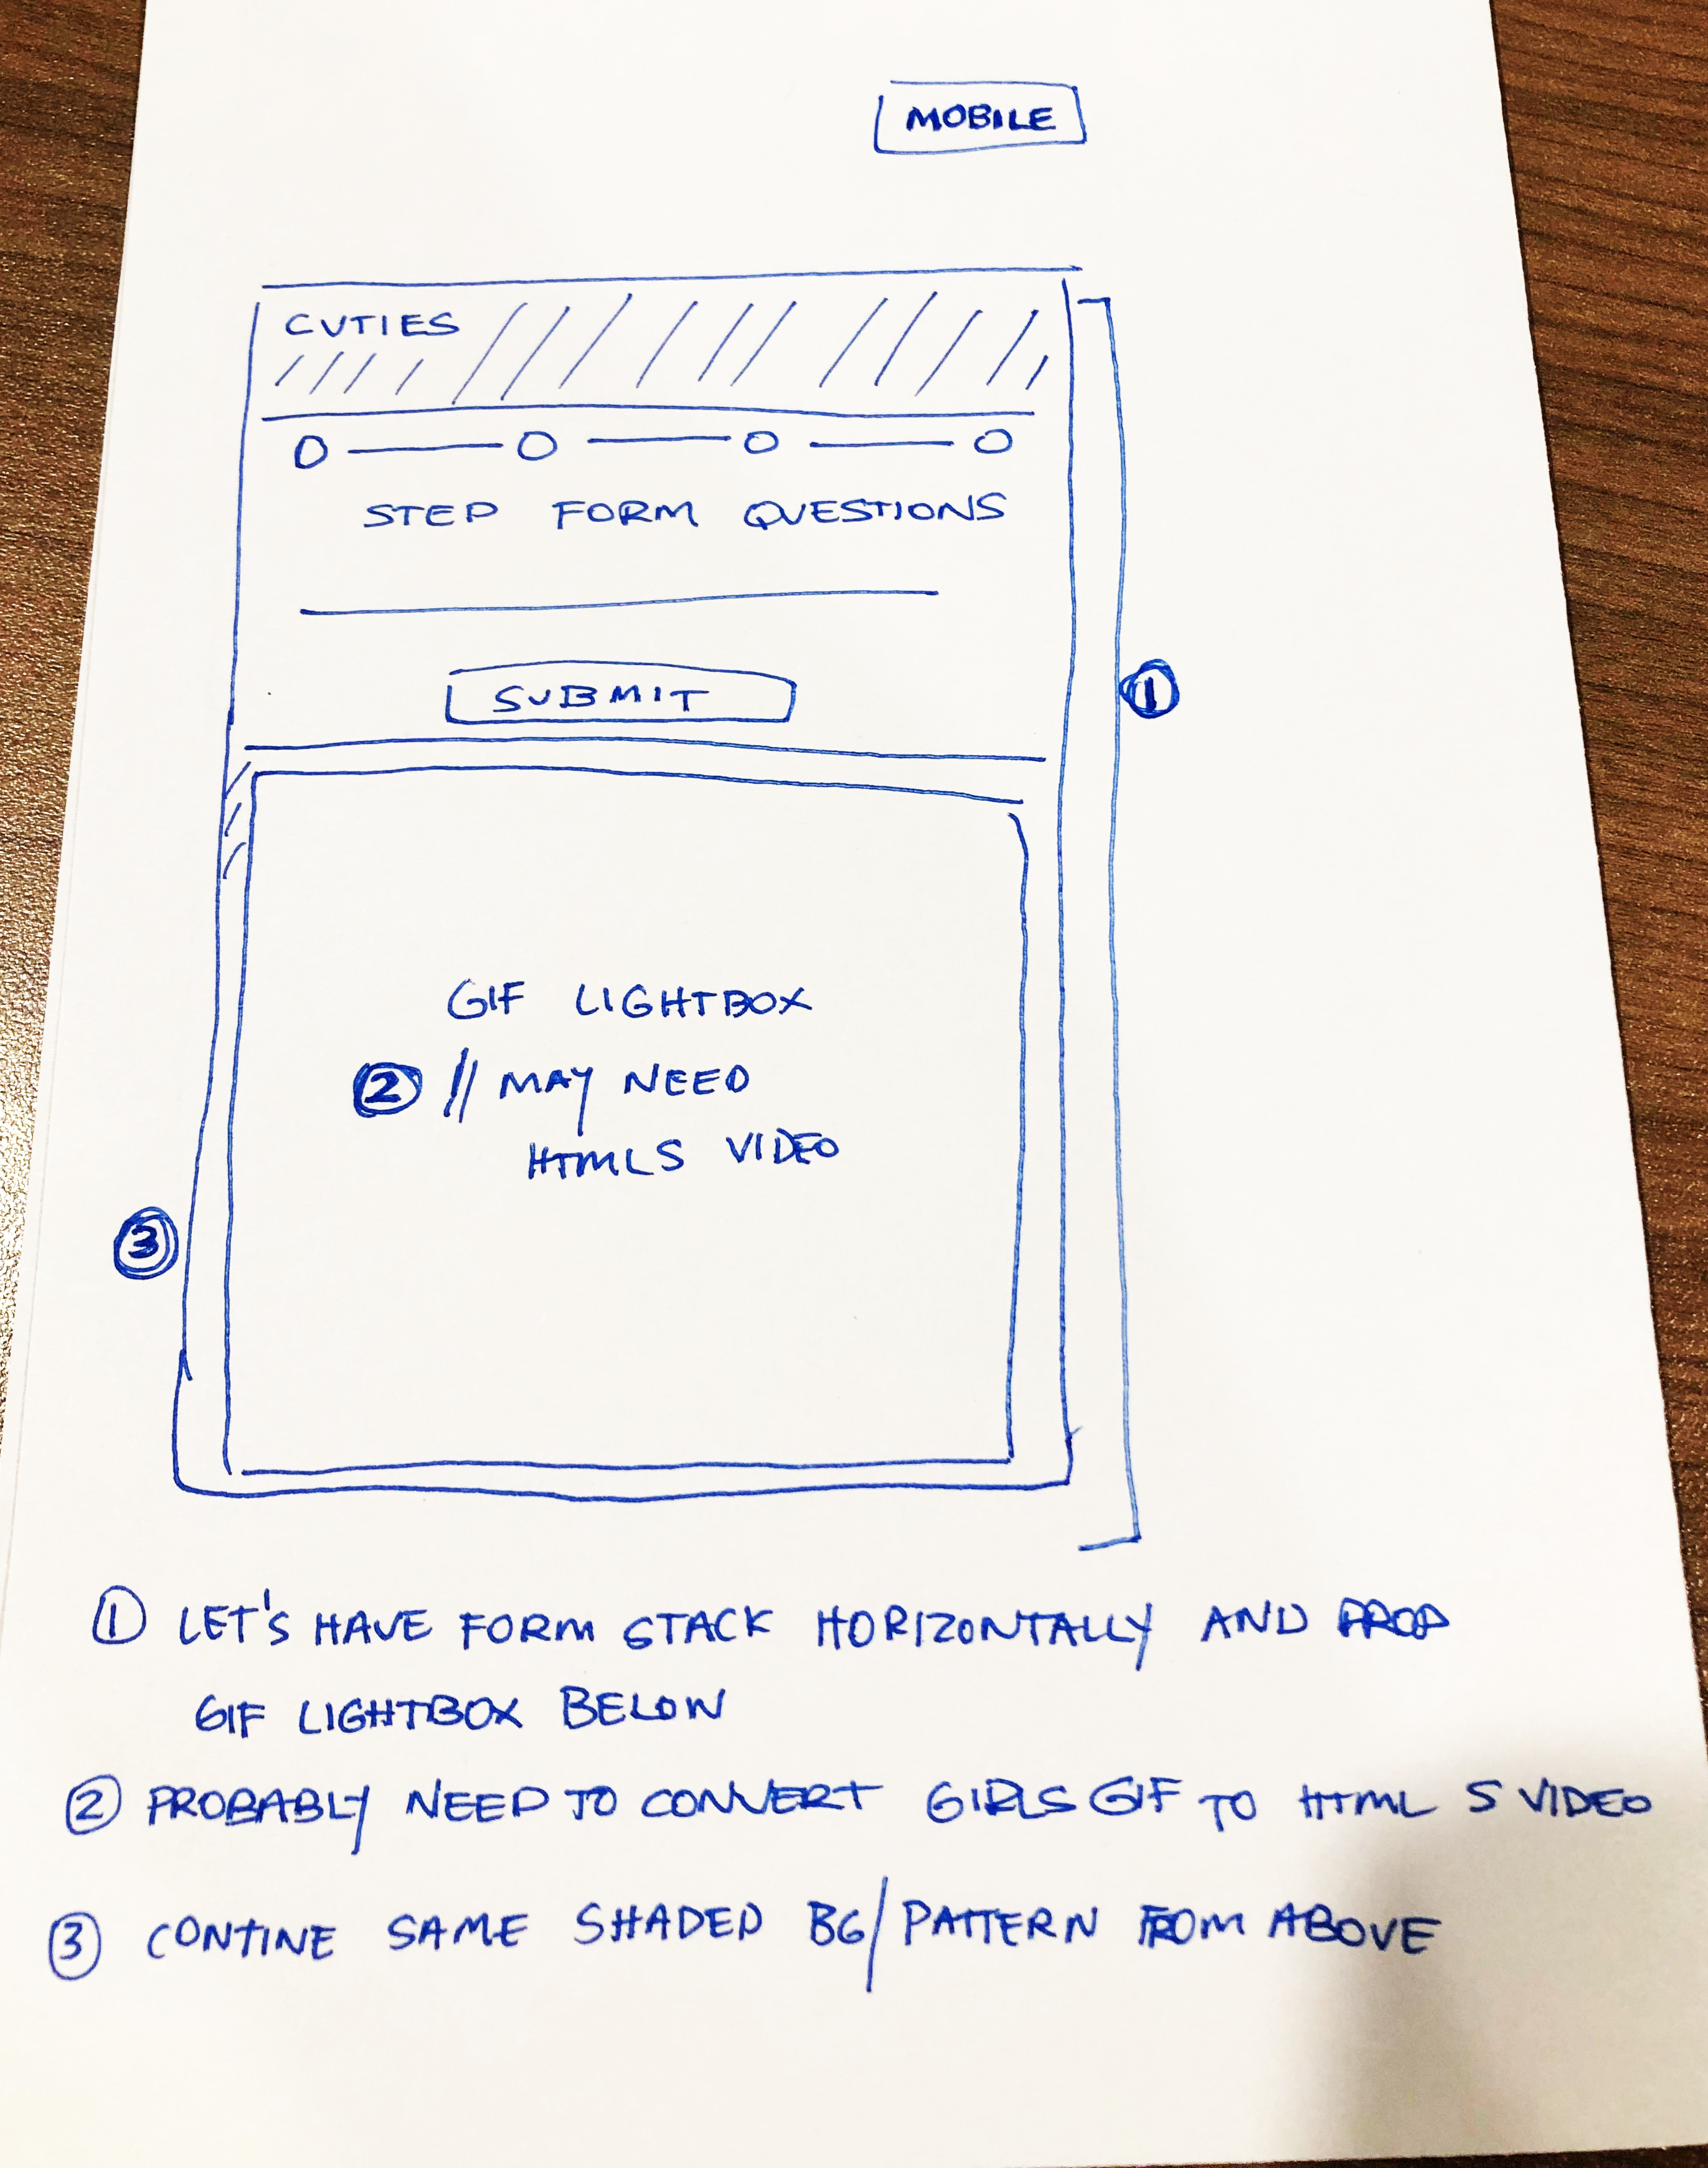 MOBILE
CUTIES
STEP FORM QUESTIONS
SUBMIT
1
GIF LIGHTBOX
2 // MAY NEED
HTML5 VIDEO
3
1 LET'S HAVE FORM STACK HORIZONTALLY AND DROP
GIF LIGHTBOX BELOW
2 PROBABLY NEED TO CONVERT GIRLS GIF TO HTML 5 VIDEO
3 CONTINE SAME SHADED BG/PATTERN FROM ABOVE